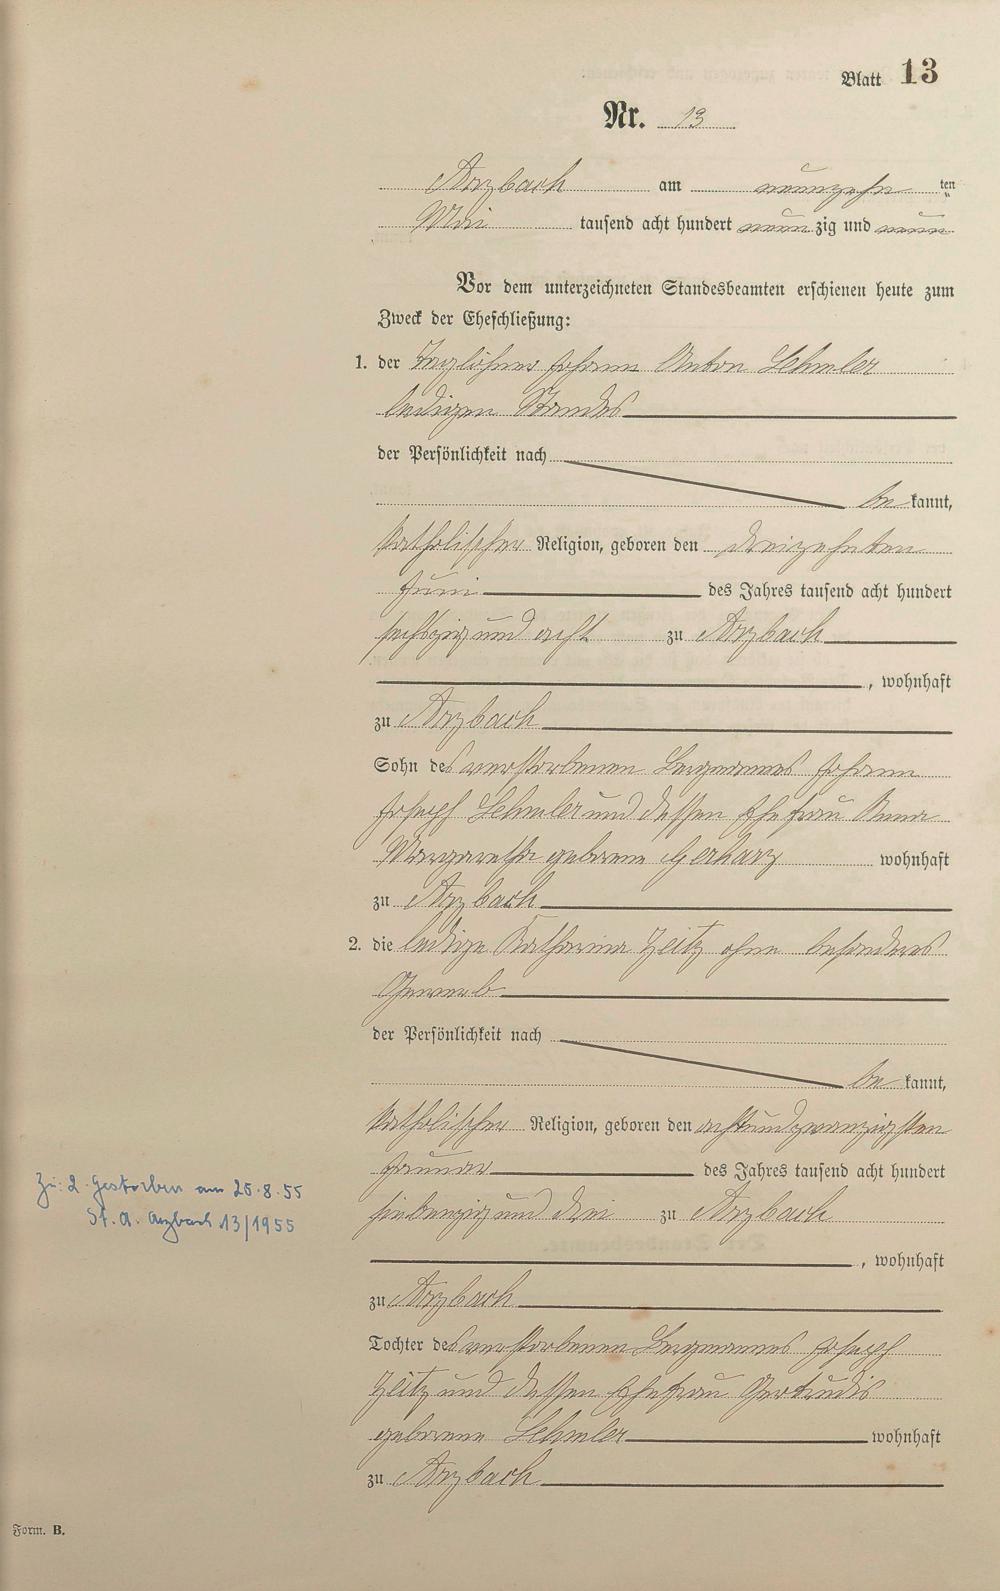 Blatt 13
Nr. 13
Arzbach am neunzehn ten
Mai tausend acht hundert neun zig und neun
Vor dem unterzeichneten Standesbeamten erschienen heute zum
Zweck der Eheschließung:
1. der Taglöhner Johann Anton Lehmler
ledigen Standes
der Persönlichkeit nach
be kannt,
katholischer Religion, geboren den dreizehnten
Juni des Jahres tausend acht hundert
sechszig und acht zu Arzbach
, wohnhaft
zu Arzbach
Sohn des verstorbenen Bergmannes Johann
Joseph Lehmler und dessen Ehefrau Anna
Margaretha geborene Gerharz wohnhaft
zu Arzbach
2. die ledige Katharina Zeitz ohne besonderes
Gewerb
der Persönlichkeit nach
be kannt,
katholischer Religion, geboren den achtundzwanzigsten
Januar des Jahres tausend acht hundert
siebenzig und drei zu Arzbach
, wohnhaft
zu Arzbach
Tochter des verstorbenen Bergmannes Joseph
Zeitz und dessen Ehefrau Gertrudis
geborene Lehmler wohnhaft
zu Arzbach
Zu: 2 Gestorben am 25.8.55
St. A. Arzbach 13/1955
Form. B.